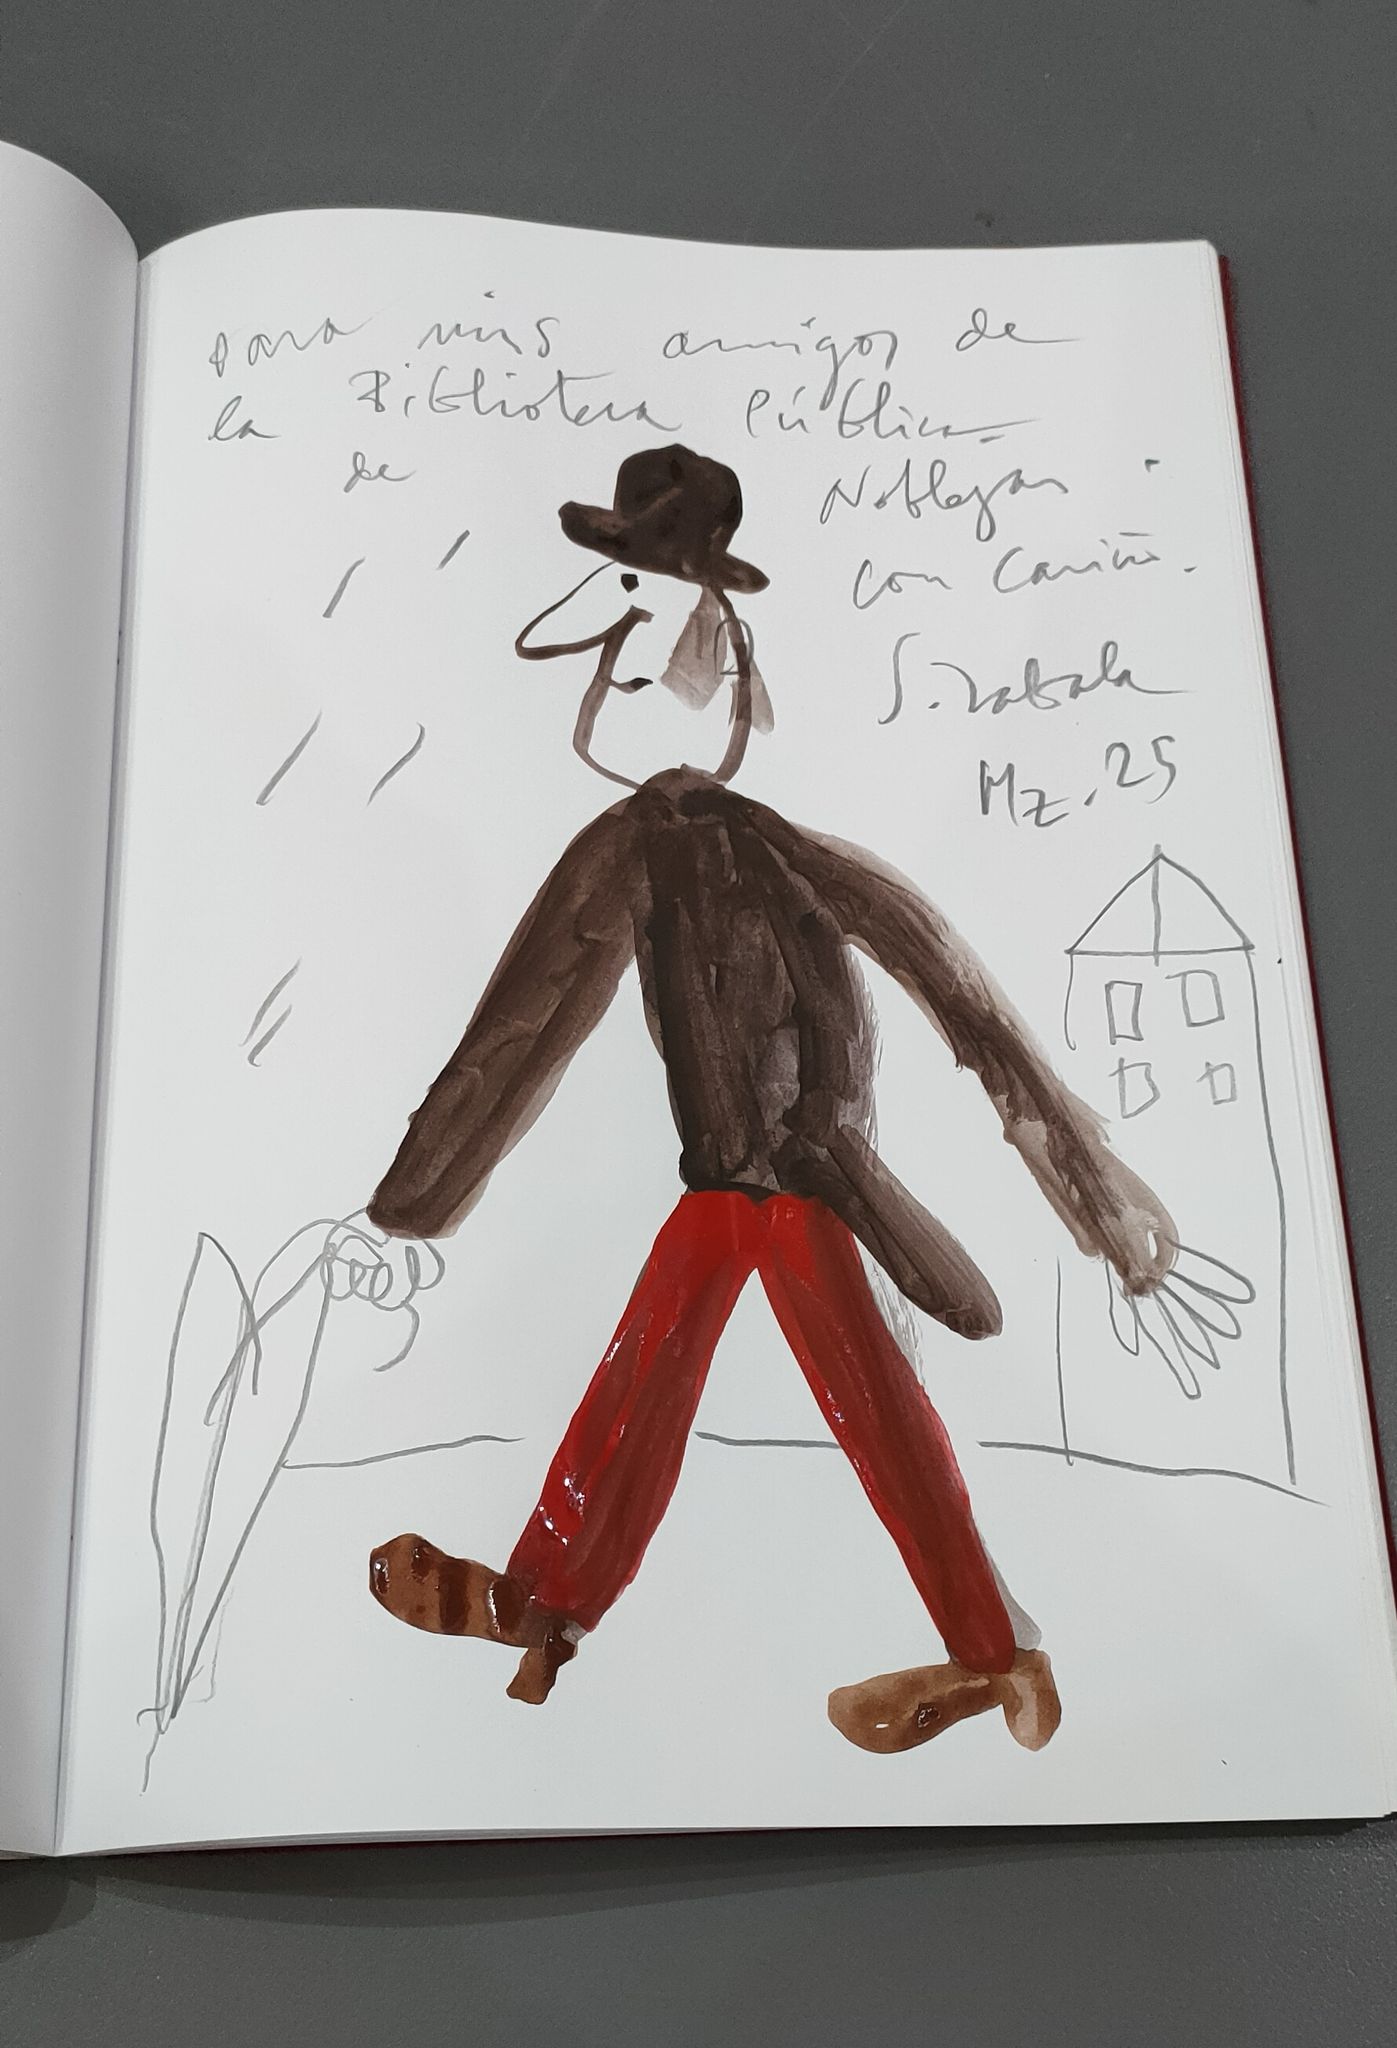 para mis amigos de
la Biblioteca Pública
de Noblejas
con Cariño.
J. Zabala
Mz. 25